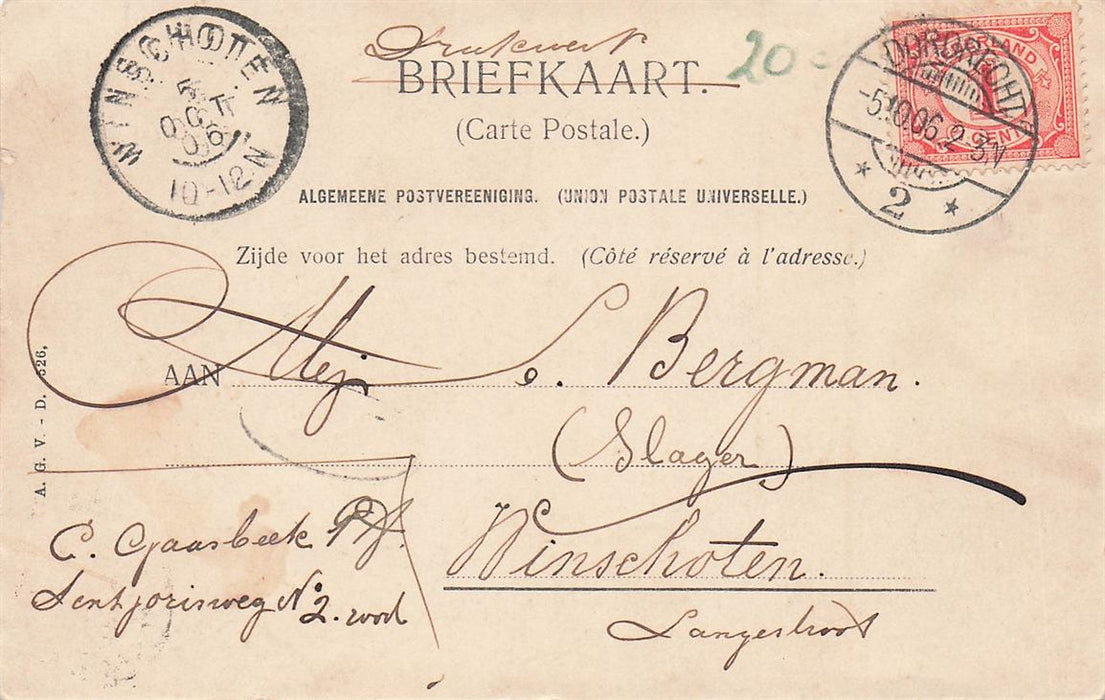 Drukwerk
BRIEFKAART.
20
(Carte Postale.)
WINSCHOTEN
5 OCT
06
10-12N
DORDRECHT
-5.10.06 2-3N
2
NEDERLAND
1
CENT
ALGEMEENE POSTVEREENIGING. (UNION POSTALE UNIVERSELLE.)
Zijde voor het adres bestemd. (Côté réservé à l'adresse.)
AAN Mej. S. Bergman.
(Slager)
Winschoten.
Langestraat
A. G. V. - D. 526.
C. Gaasbeek
Sentjorisweg No 2.